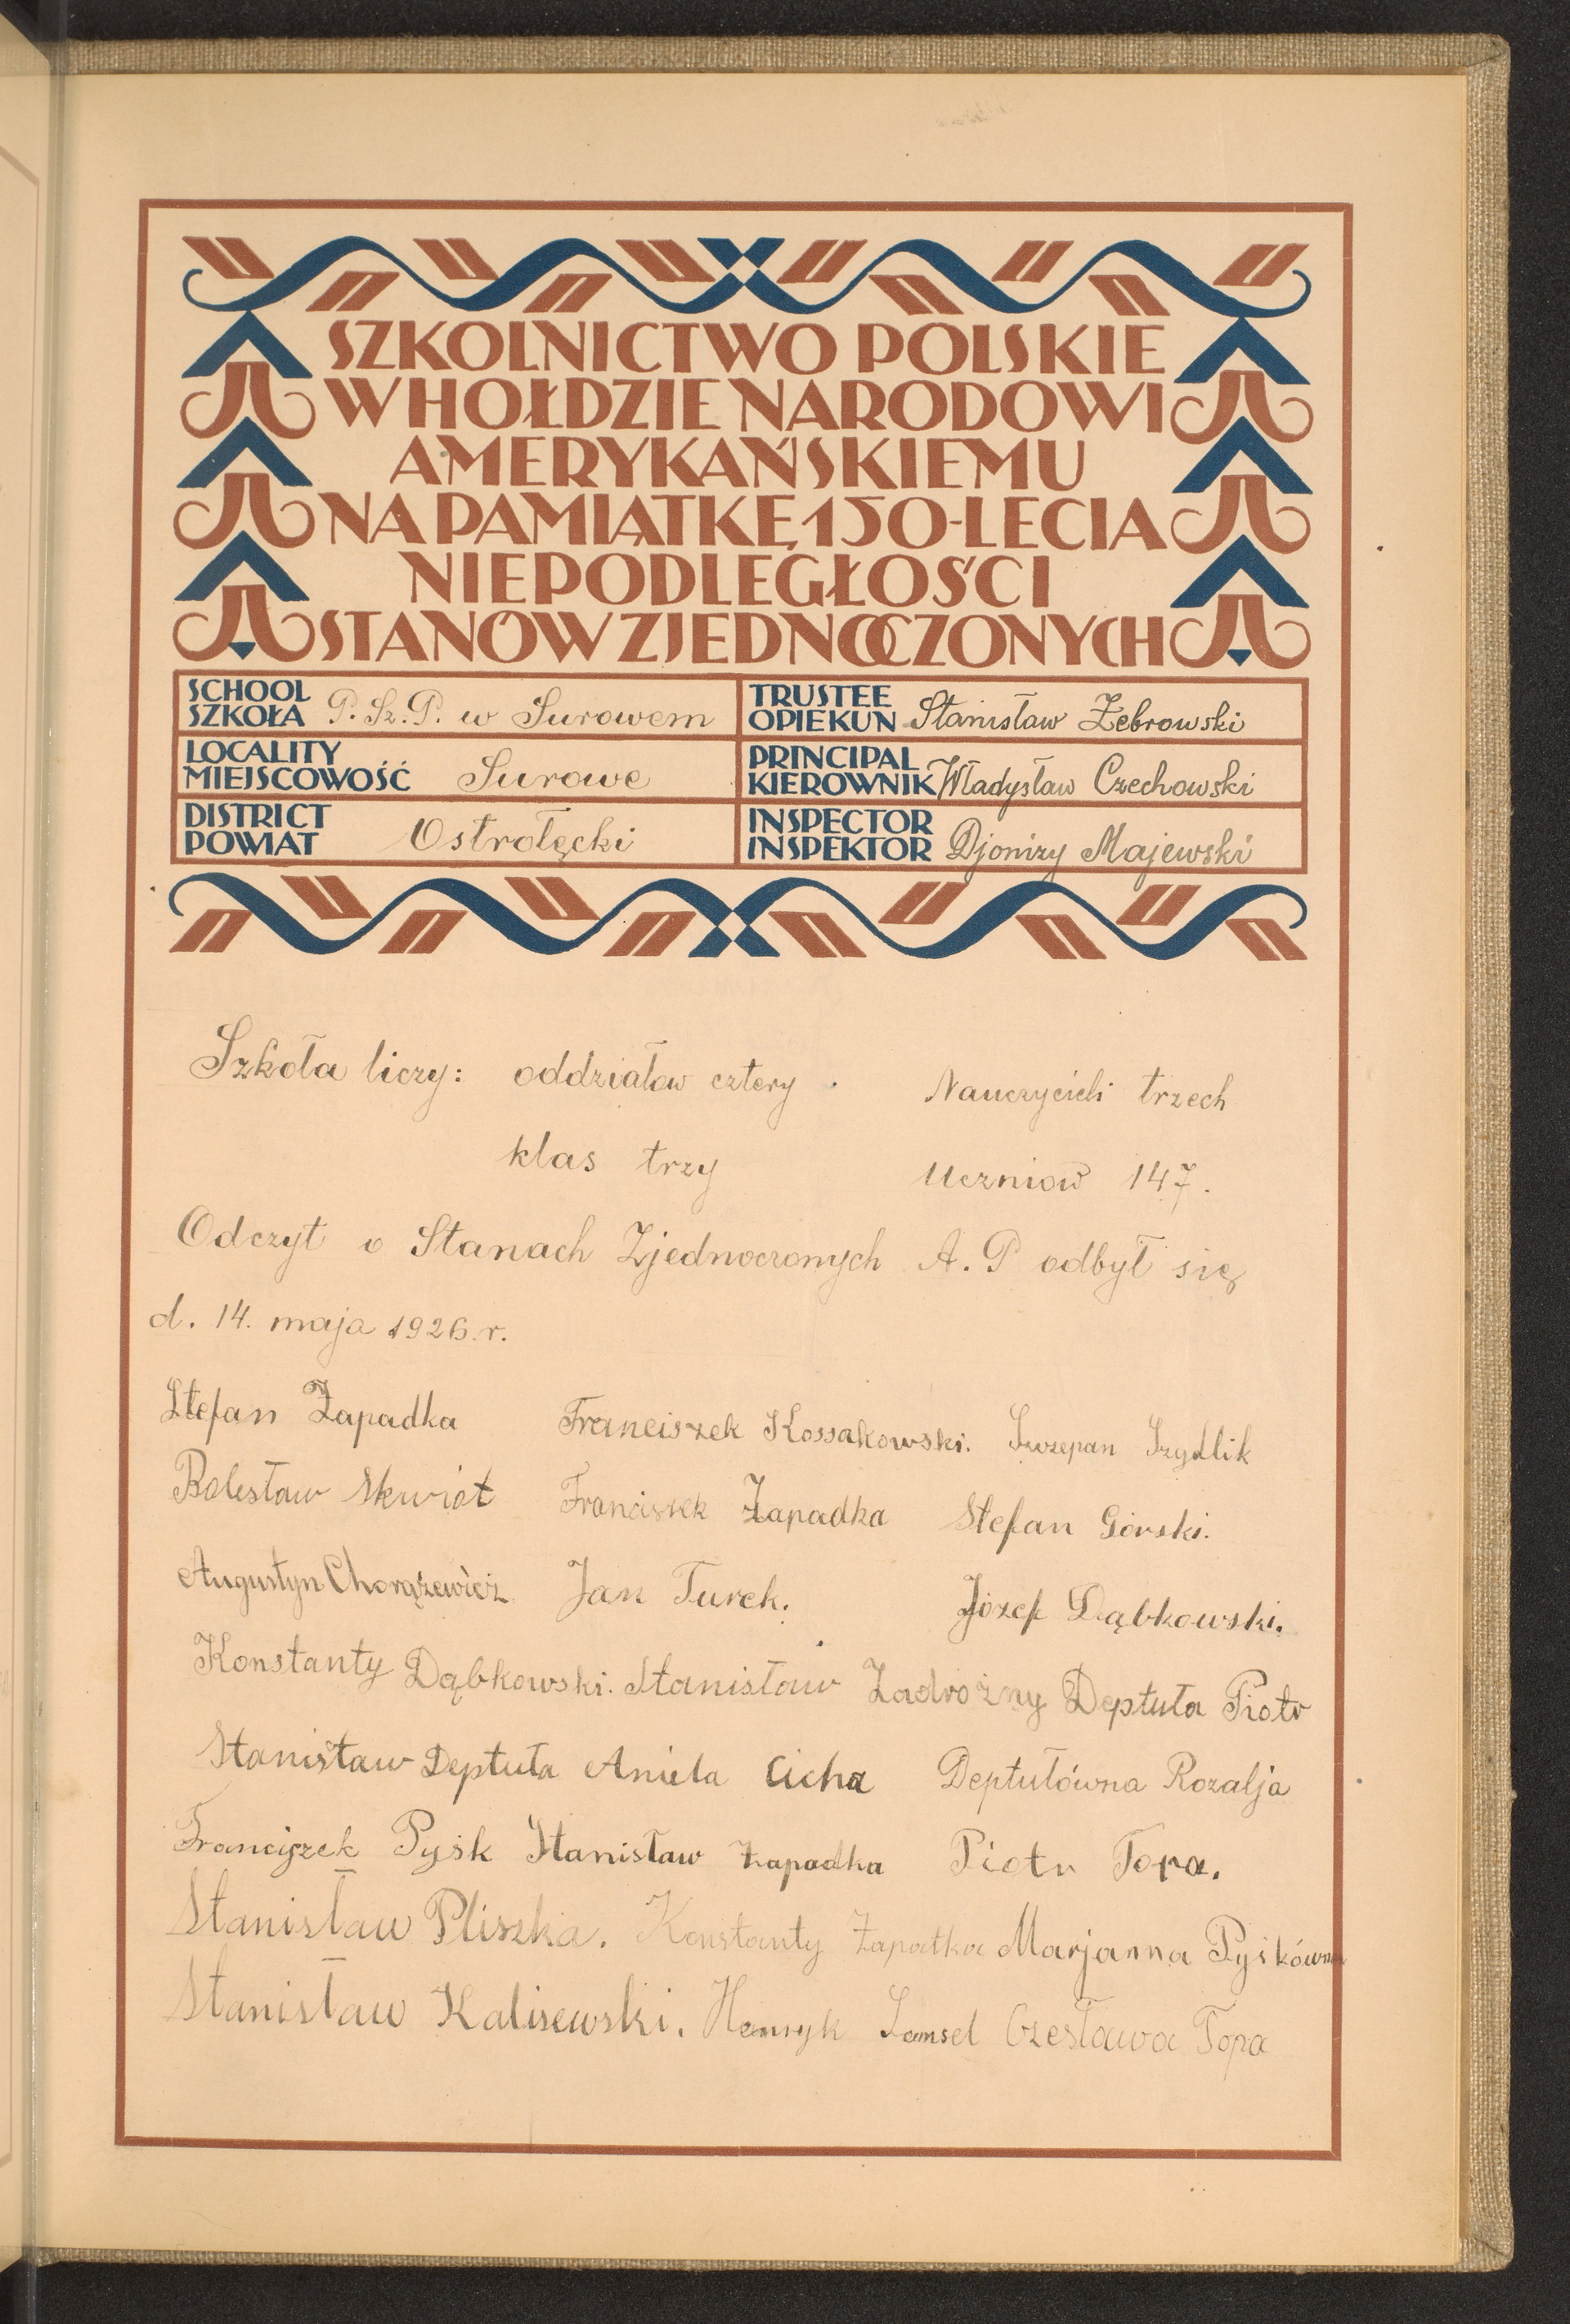 SZKOLNICTWO POLSKIE
W HOŁDZIE NARODOWI
AMERYKAŃSKIEMU
NA PAMIĄTKĘ 150-LECIA
NIEPODLEGŁOŚCI
STANÓW ZJEDNOCZONYCH
SCHOOL
SZKOŁA P. Sz. P. w Surowem
TRUSTEE
OPIEKUN Stanisław Żebrowski
LOCALITY
MIEJSCOWOŚĆ Surowe
PRINCIPAL
KIEROWNIK Władysław Czechowski
DISTRICT
POWIAT Ostrołęcki
INSPECTOR
INSPEKTOR Djonizy Majewski
Szkoła liczy: oddziałow cztery. Nauczycieli trzech
klas trzy Uczniow 147.
Odczyt o Stanach Zjednoczonych A. P odbył się
d. 14. maja 1926. r.
Stefan Zapadka Franciszek Kossakowski. Szczepan Szydlik
Bolesław Skwiot Franciszek Zapadka Stefan Górski.
Augustyn Chorążewicz Jan Turek. Józef Dąbkowski.
Konstanty Dąbkowski. Stanisław Zadrożny Deptuła Piotr
Stanisław Deptuła Aniela Cicha Deptułówna Rozalja
Franciszek Pyśk Stanisław Zapadka Piotr Topa.
Stanisław Pliszka. Konstanty Zapatka Marjanna Pyśkówna
Stanisław Kalisewski. Henryk Samsel Czesława Topa